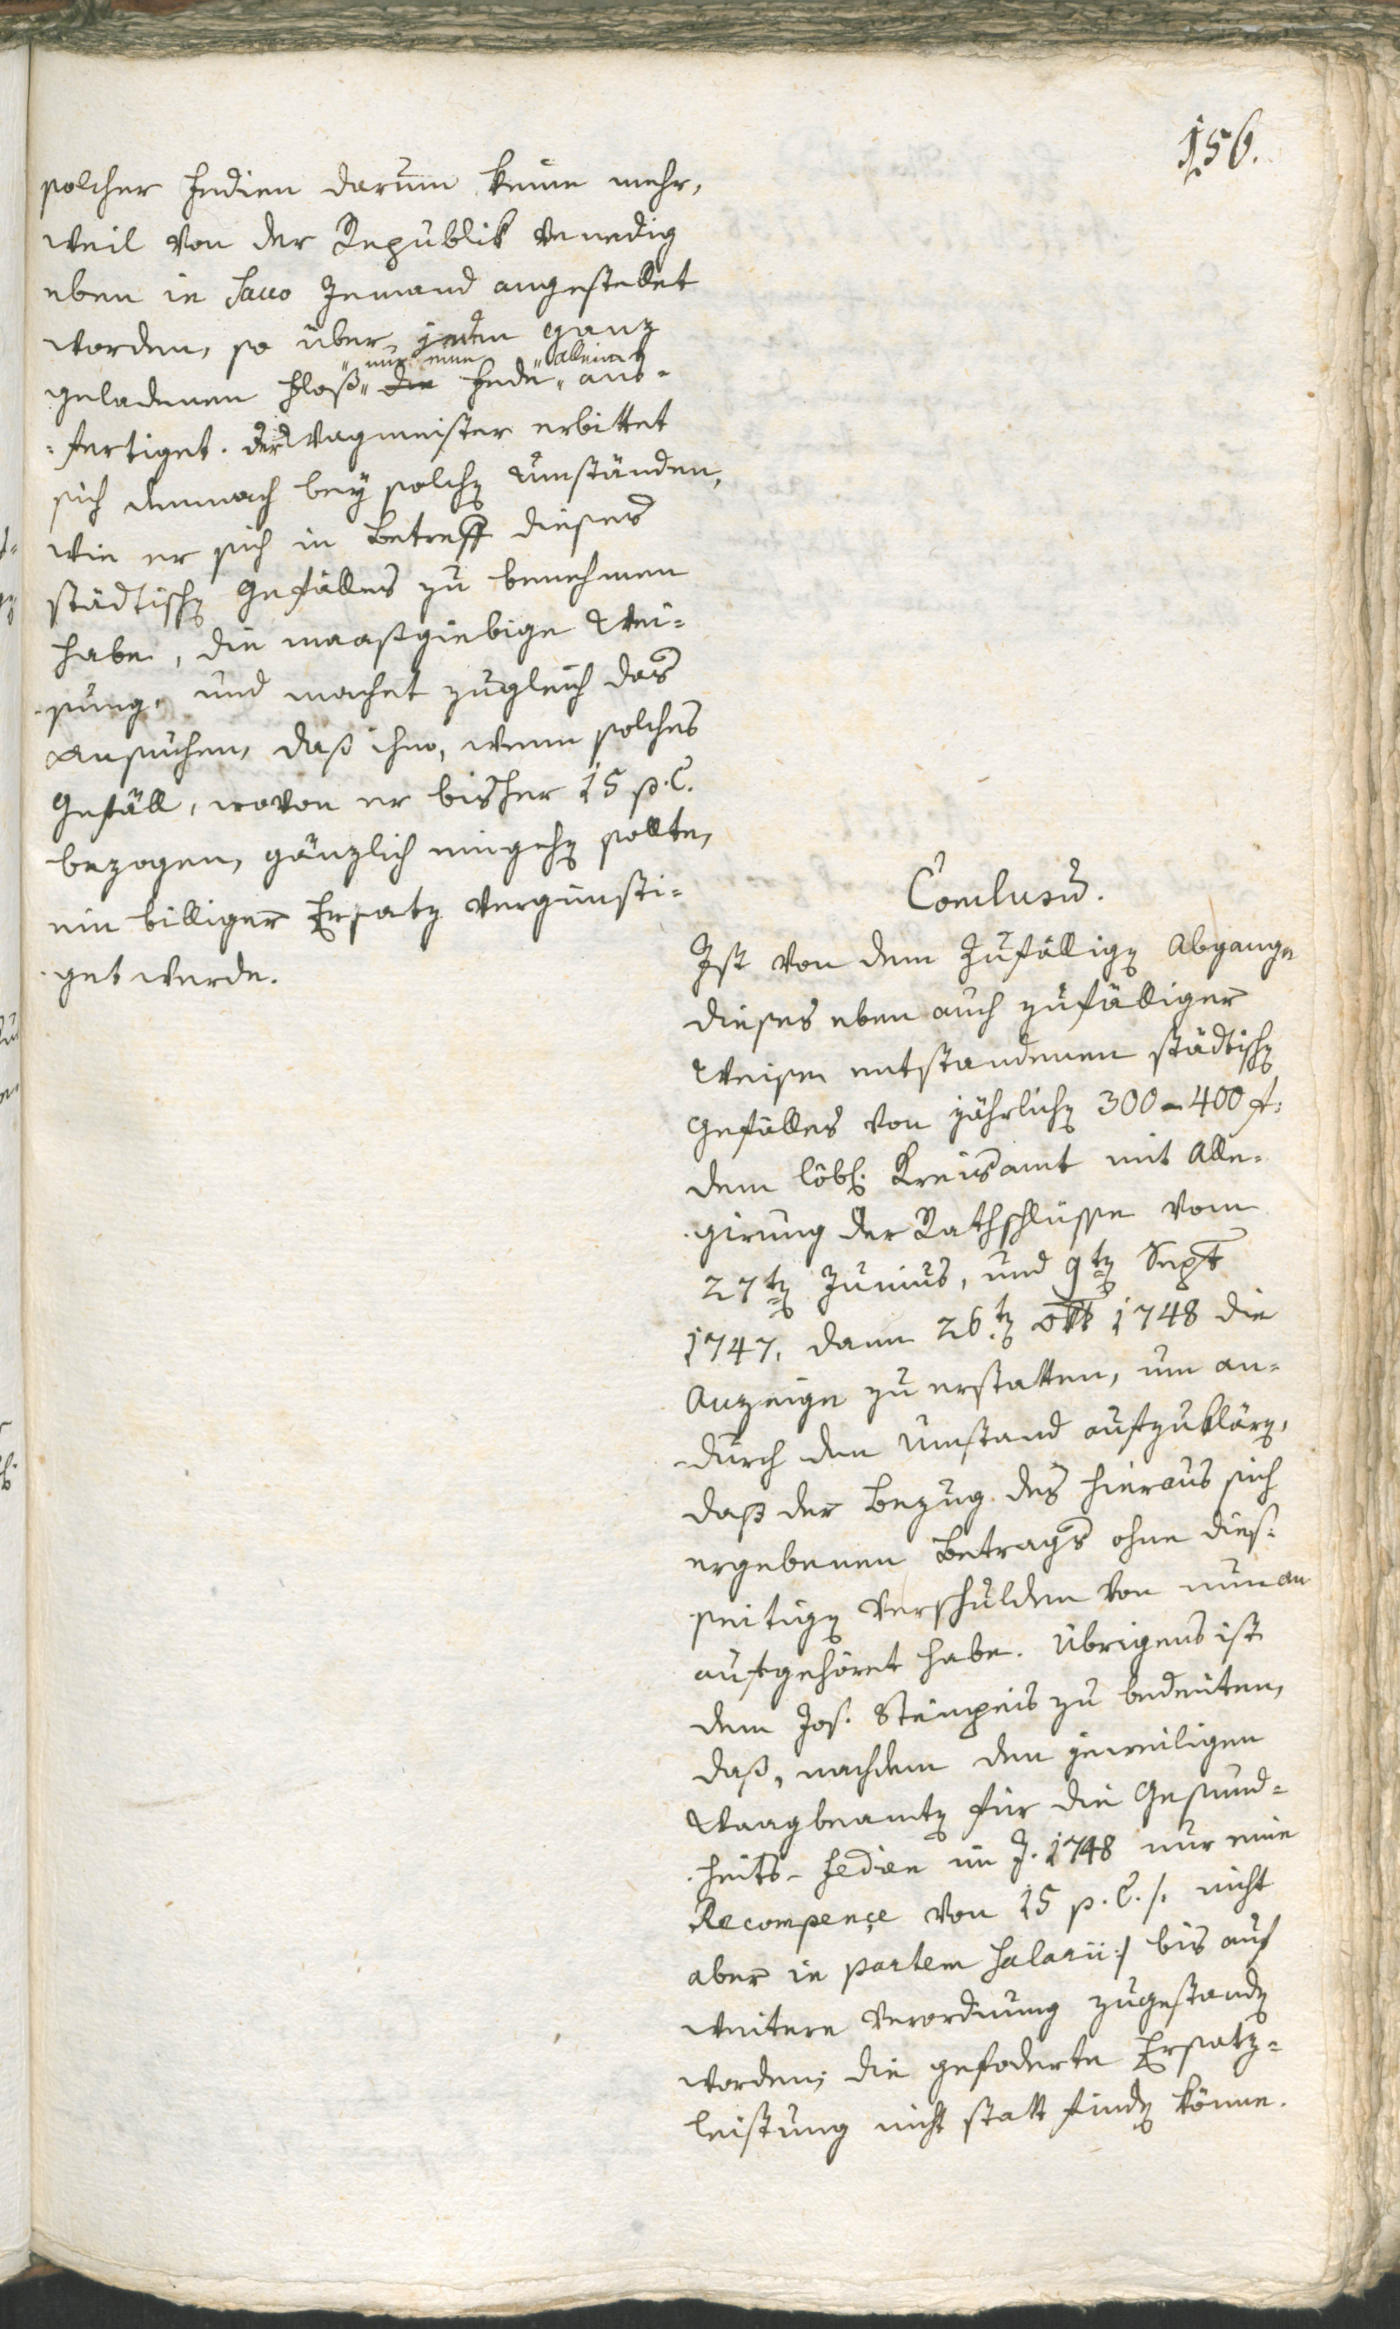 156.
solcher Fedien darum keine mehr,
weil von der Republik Venedig
eben in Sacco Jemand angestellet
worden, so über jeden ganz
„nur eine „allein
geladenen Floß „die Fede „aus-
-fertiget. Der Wagmeister erbittet
sich demnach bey solchen Umständen,
wie er sich in Betreff dieses
städtischen Gefälles zu benehmen
habe, die maaßgiebige Wei-
-sung, und machet zugleich das
Ansuchen, daß ihm, wenn solches
Gefäll, wovon er bisher 15 p. C.
bezogen, gänzlich eingehen sollte,
ein billiger Ersatz vergünsti-
-get werde.
Conclusum.
Ist von dem zufälligen Abgange
dieses eben auch zufälliger
Weise entstandenen städtischen
Gefälles von jährlichen 300 – 400 f.
dem löbl. Kreisamt mit Alle-
-girung der Rathschlüsse vom
27ten Junius, und 9ten Sept
1747, dann 26.ten Okt 1748 die
Anzeige zu erstatten, um an-
-durch den Umstand aufzuklären,
daß der Bezug des hieraus sich
ergebenen Betrags ohne dies-
-seitigen Verschulden von nun an
aufgehöret habe. Übrigens ist
dem Jos. Stêinpeis zu bedeuten,
daß, nachdem den jeweiligen
Waagbeamten für die Gesund-
-heits-Fedien im J. 1748 nur eine
Recompençe von 15 p. C. /: nicht
aber in partem Salarii :/ bis auf
weitere Verordnung zugestanden
worden; die gefoderte Ersatz-
leistung nicht statt finden könne.